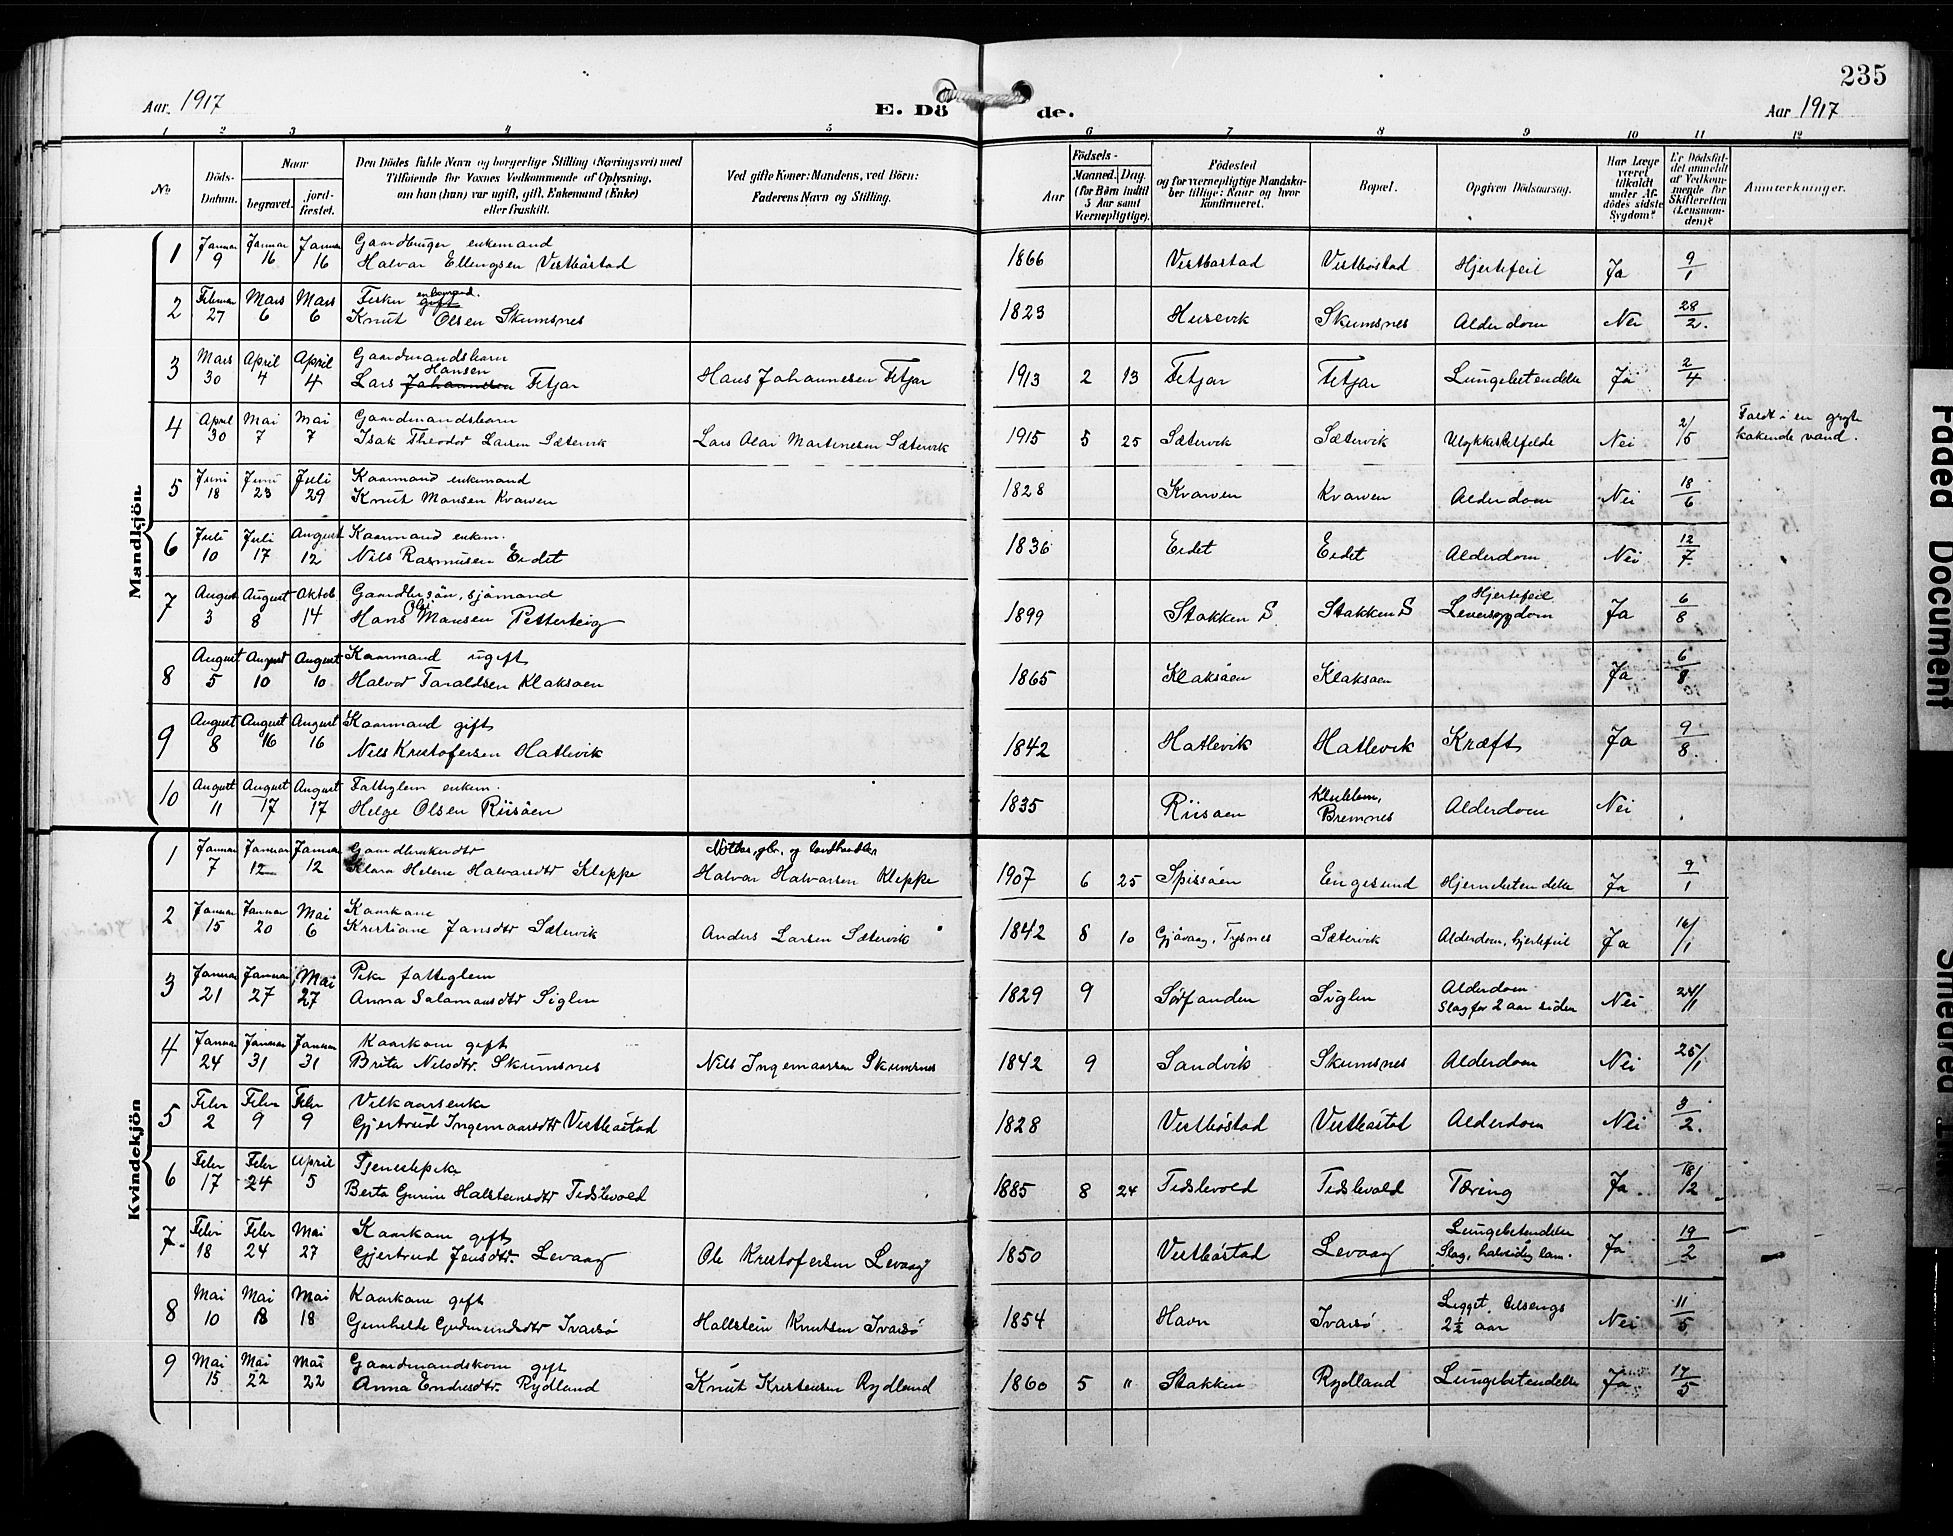 235
Aar 1917
E. Dö de.
Aar 1917
1 2 3 4 5 6 7 8 9 10 11 12
No
Döds-Datum.
Naar
begravet.
jord-fæstet.
Den Dödes fulde Navn og borgerlige Stilling (Næringsvei) med
Tilføiende for Voxnes Vedkommende af Oplysning,
om hun (han) var ugift, gift, Enkemand (Enke)
eller fraskilt.
Ved gifte Koner: Mandens, ved Börn:
Faderens Navn og Stilling.
Födsels-
Aar
Maaned. Dag.
(for Börn indtil
3 Aar samt
Værnepligtige).
Födested
og for værnepligtige Mandska-
ber tillige: Naar og hvor
konfirmeret.
Bopæl.
Opgiven Dödsaarsag.
Har Læge
været
tilkaldt
under Af-
dødes sidste
Sygdom?
Er Dödsfal-
det anmeldt
af Vedkom-
mende for
Skifteretten
(Lensman-
den)?
Anmærkninger.
Mandkjön.
1 Januar 9 Januar 16 Januar 16 Gaardbruger enkemand
Halvar Ellingsen Vestböstad 1866 Vestbostad Vestböstad Hjertefeil Ja 9/1
2 Februar 27 Mars 6 Mars 6 Fisker gift enkemand.
Knut Olsen Skumsnes 1823 Husevik Skumsnes Alderdom Nei 28/2.
3 Mars 30 April 4 April 4 Gaardmandsbarn
Lars Johannesen Hansen Fitjar Hans Johannesen Fitjar 1913 2 13 Fitjar Fitjar Lungebetendelse Ja 2/4
4 April 30 Mai 7 Mai 7 Gaardmandsbarn
Isak Theodor Larsen Sætervik Lars Olai Martinesen Sætervik 1915 5 25 Sætervik Sætervik Ulykkestilfelde Nei 2/5 Faldt i en gryte
kokende vand.
5 Juni 18 Juni 23 Juli 29 Kaarmand enkemand
Knut Monsen Kvarven 1828 Kvarven Kvarven Alderdom Nei 18/6
6 Juli 10 Juli 17 August 12 Kaarmand enkem.
Nils Rasmusen Eidet 1836 Eidet Eidet Alderdom Nei 12/7
7 August 3 August 8 Oktob 14 Gaardbr sön, sjömand
Hans Olai Monsen Petterteig 1899 Stokken S. Stokken S Hjertefeil
Leversygdom Ja 6/8
8 August 5 August 10 August 10 Kaarmand ugift
Halvor Taraldsen Klaksöen 1865 Klaksöen Klaksöen Ja 6/8
9 August 8 August 16 August 16 Kaarmand gift
Nils Kristofersen Hatlevik 1842 Hatlevik Hatlevik Kræft Ja 9/8.
10 August 11 August 17 August 17 Fattiglem enkem.
Helge Olsen Riisöen 1835 Riisöen Bremnes Alderdom Nei
Kvindekjön
1 Januar 7 Januar 12 Januar 12 Gaardbrukerdtr
Klara Helene Halvarsdtr Kleppe gbr. og landhandler
Halvar Halvarsen Kleppe 1907 6 25 Spissöen Engesund Hjernebetendelse Ja 9/1
2 Januar 15 Januar 20 Mai 6 Kaarkone
Kristiane Jansdtr Sætervik Anders Larsen Sætervik 1842 8 10 Gjövaag, Tysnes Sætervik Alderdom, hjertefeil Ja 16/1
3 Januar 21 Januar 27 Mai 27 Pike fattiglem
Anna Salamonsdtr Siglen 1829 9 Sörfonden Siglen Alderdom.
Slag for 2 aar siden Nei 24/1
4 Januar 24 Januar 31 Januar 31 Kaarkone gift
Brita Nilsdtr. Skumsnes Nils Ingemarssen Skumsnes 1842 9 Sandvik Skumsnes Alderdom Nei 25/1
5 Febr 2 Febr 9 Febr 9 Vilkaarsenke
Gjertrud Ingemarsdtr Vestböstad 1828 Vestböstad Vestböstad Alderdom Nei 3/2.
6 Febr 17 Febr 24 April 5 Tjenestepike
Berta Gurine Halsteinsdtr Tislevold 1885 8 24 Tislevold Tislevold Tæring Ja 18/2
7 Febr 18 Febr 24 Mai 27 Kaarkone gift
Gjertrud Jensdtr. Levaag Ole Kristofersen Levaag 1850 Vestböstad Levaag Lungebetendelse
Slag, halvsidig lam. Ja 19/2
8 Mai 10 Mai 18 Mai 18 Kaarkone gift
Gunhilde Gudmundsdtr Ivarsö Hallstein Knutsen Ivarsö 1854 Havn Ivarsö Ligget tilsengs
2½ aar Nei 11/5
9 Mai 15 Mai 22 Mai 22 Gaardmandskone gift
Anna Endresdtr. Rydland Knut Kristensen Rydland 1860 5 " Stokken Rydland Lungebetendelse Ja 17/5
Faded Document
Smeared Ink